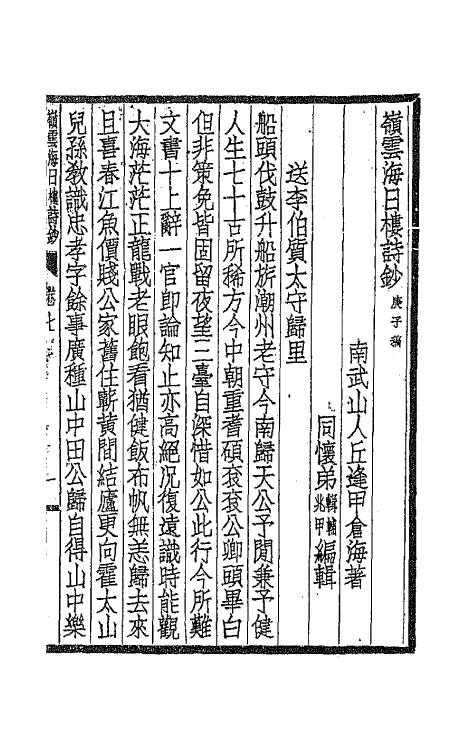 嶺雲海日樓詩鈔 庚子稿
南武山人丘逢甲倉海著
同懷弟 輯 兆甲 編輯
送李伯質太守歸里
船頭伐鼓升船旂潮州老守今南歸天公予閒兼予健
人生七十古所稀方今中朝重耆碩袞袞公卿頭畢白
但非策免皆固留夜望三臺自深惜如公此行今所難
文書十上辭一官即論知止亦高絕況復遠識時能觀
大海茫茫正龍戰老眼飽看猶健飯布帆無恙歸去來
且喜春江魚價賤公家舊住蘄黃間結廬更向霍太山
兒孫教識忠孝字餘事廣種山中田公歸自得山中樂
嶺雲海日樓詩鈔 卷七 一